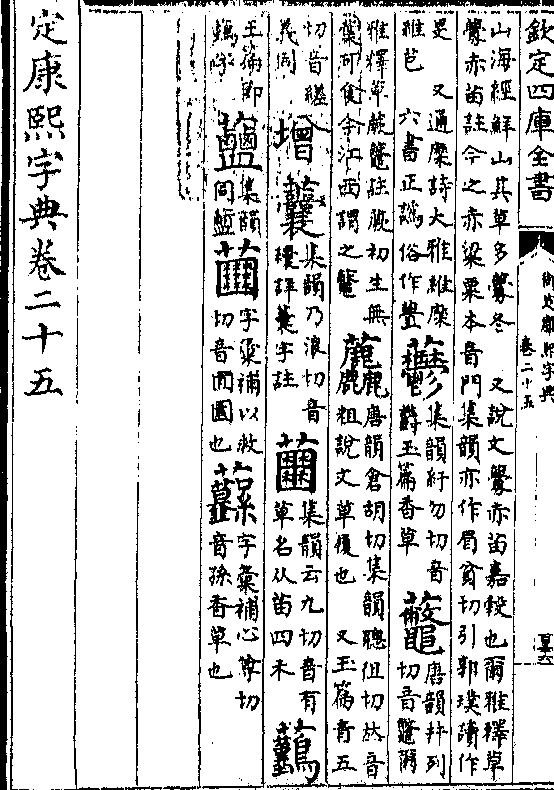 欽定四庫全書
御定康熙字典
卷二十五
山海經鮮山其草多虋冬 又說文虋赤苗嘉穀也爾雅釋草
虋赤苗註今之赤粱粟本音門集韻亦作眉貧切引郭璞讀作
又通穈詩大雅維穈
維芑 六書正譌俗作
集韻紆勿切音
玉篇香草
唐韻幷列
切音鼈爾
雅釋草蕨虌註蕨初生無
葉可食今江西謂之虌
麤 唐韻倉胡切集韻聰徂切𠀤音
麤粗說文草履也 又玉篇音五
切音
義同
增 囊 集韻乃浪切音
集韻云九切音有
草名从茻四木
玉篇卽
集韻
同
字彙補以救
切音而園也
字彙補心尊切
音孫香草也
定康熙字典卷二十五